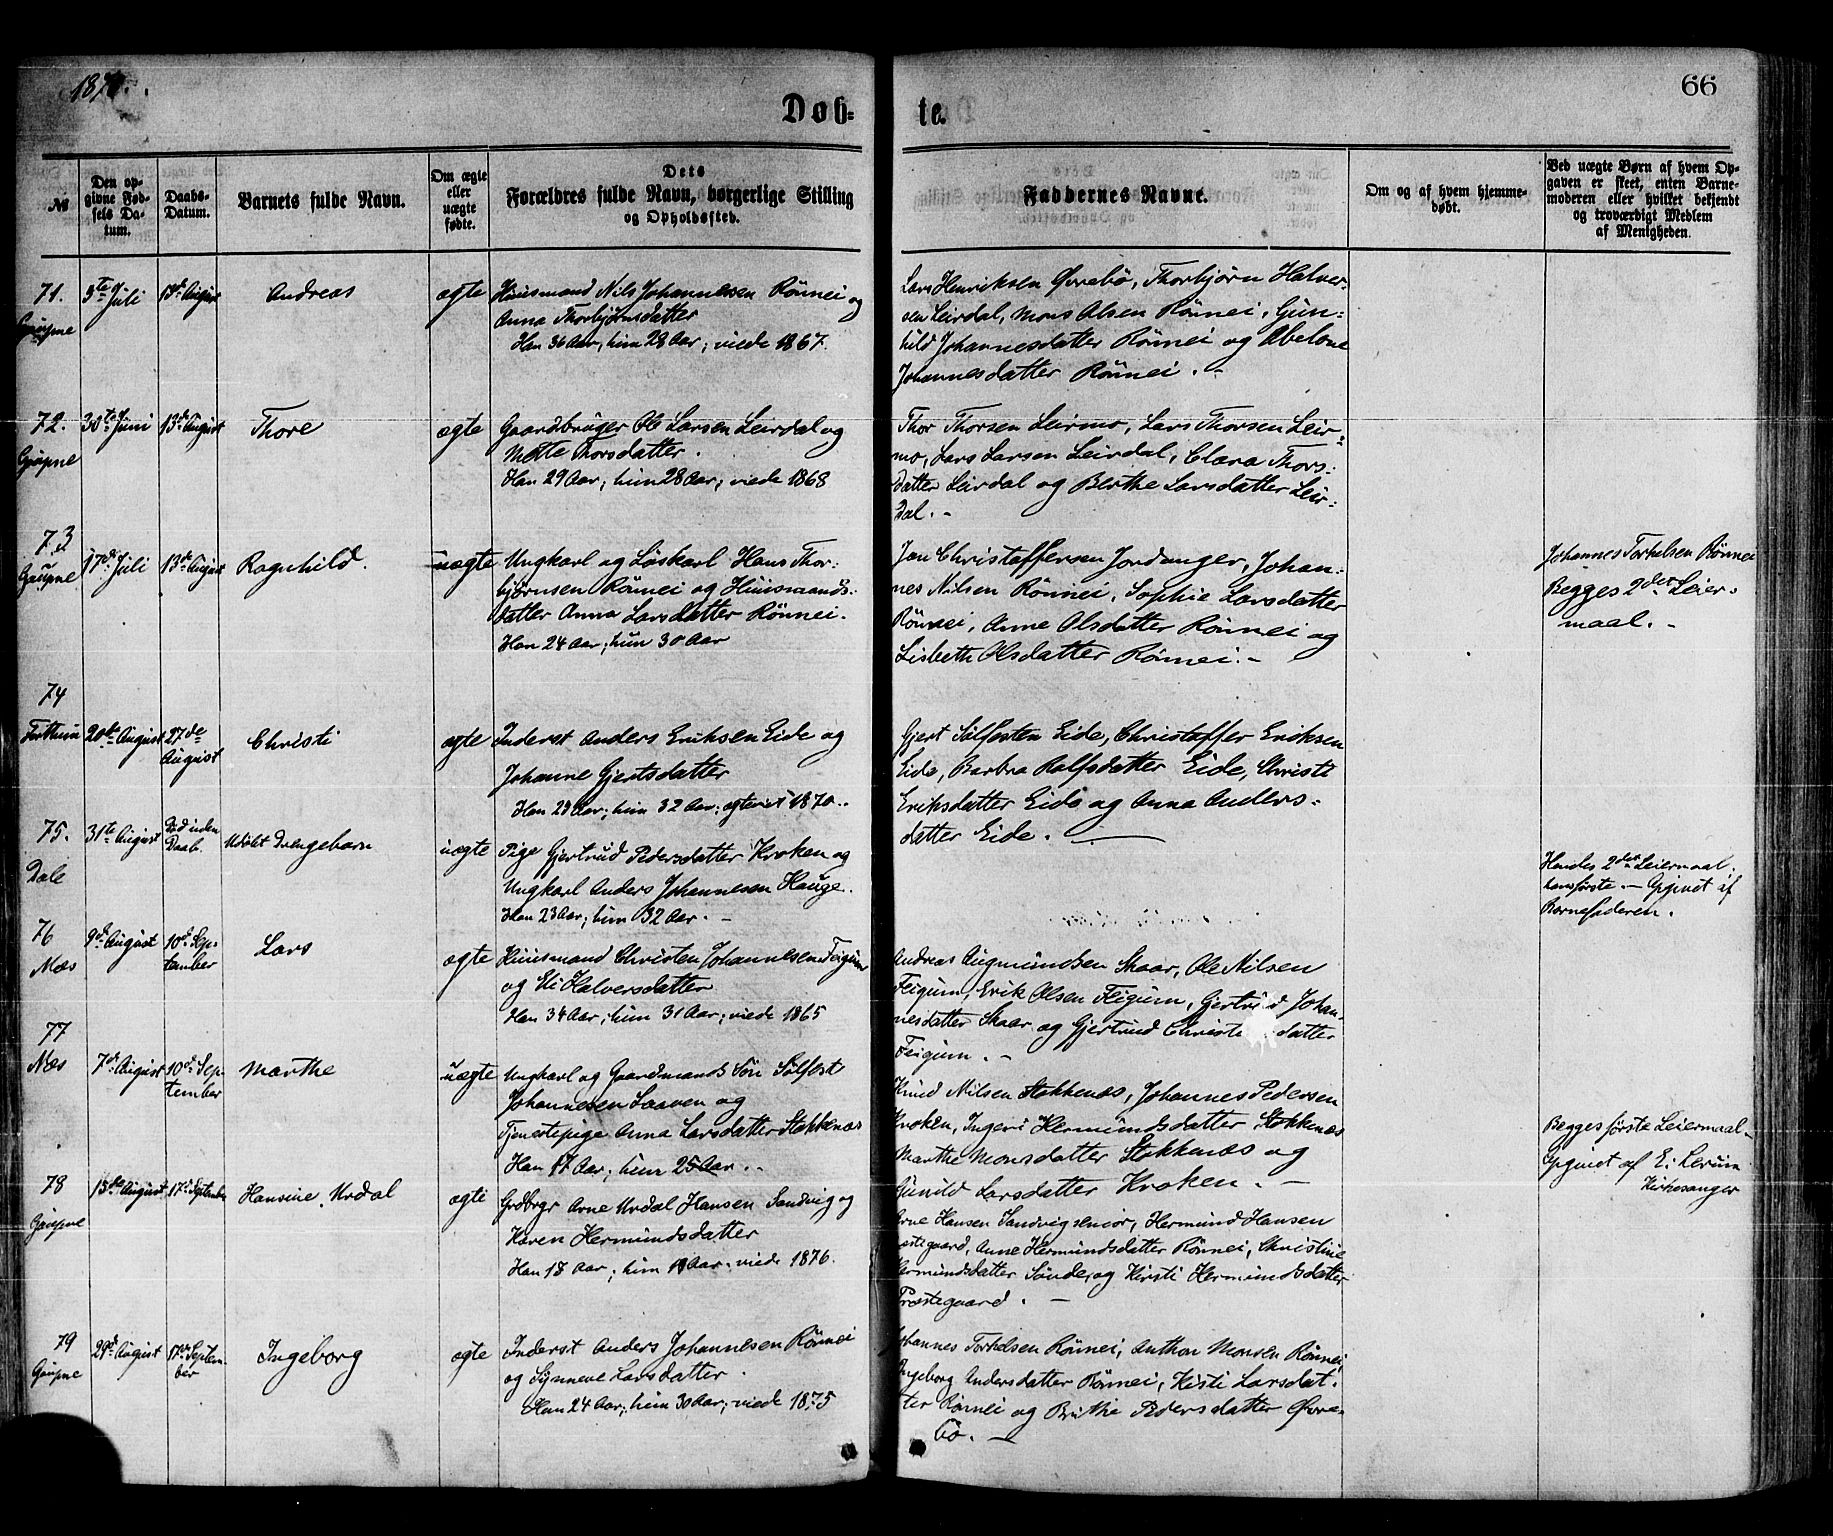 187
66
Døb-
te.
№
Den op-
givne Fød-
sels Da-
tum.
Daabs-
Datum.
Barnets fulde Navn.
Om ægte
eller
uægte
fødte.
Dets
Forældres fulde Navn, borgerlige Stilling
og Opholdssted.
Faddernes Navne.
Om og af hvem hjemme-
døbt.
Ved uægte Børn af hvem Op-
gaven er skeet, enten Barne-
moderen eller hvilket bekjendt
og troværdigt Medlem
af Menigheden.
71.
Gaupne
Juli
13de August
Andreas
ægte
Huusmand Nils Johannessen Rønnei og
Anna Thorbjørnsdatter
Han 36 Aar, hun 28 Aar; viede 1867.
Lars Henriksen Øvrebø, Thorbjørn Halver-
sen Leirdal, Mons Olsen Rønnei, Gun-
hild Johannesdatter Rønnei og Abelone
Johannesdatter Rønnei. -
72.
Gaupne
30te Juni
13de August
Thore
ægte
Gaardbruger Ole Larsen Leirdal og
Mette Thorsdatter.
Han 29 Aar, hun 28 Aar; viede 1868
Thor Thorsen Leirmo, Lars Thorsen Leir-
mo, Lars Larsen Leirdal, Clara Thors-
datter Leirdal og Berthe Larsdatter Leir-
dal. -
73
Gaupne
17de Juli
13de August
Ragnhild.
uægte
Ungkarl og Løskarl Hans Thor-
bjørnsen Rønnei og Huusmands-
datter Anna Larsdatter Rønnei.
Han 24 Aar; hun 30 Aar
Jon Christaffersen Jordanger, Johan-
nes Nilsen Rønnei, Sophie Larsdatter
Rønnei, Anne Olsdatter Rønnei og
Lisbeth Olsdatter Rønnei. -
Johannes Torkelsen Rønnei
Begges 2det Leier-
maal. -
74
Forthun
20de August
27de
August
Christi
ægte
Inderst Anders Eriksen Eide og
Johanne Gjertsdatter
Han 28 Aar; hun 32 Aar; ægteviet 1870.
Gjert Sølfesten Eide, Christaffer Eriksen
Eide, Barbra Rolfsdatter Eide, Christi
Eriksdatter Eide og Anna Anders-
datter Eide. -
75.
Dale
31te August
Død uden
Daab.
Udøbt Drengebarn
uægte
Pige Gjertrud Pedersdatter Kroken og
Ungkarl Anders Johannesen Hauge.
Han 23 Aar; hun 32 Aar. -
Hendes 2det Leiermaal;
hans første. - Opgivet af
Barnefaderen.
76
Næs
9de August
10de Sep-
tember
Lars
ægte
Huusmand Christen Johannesen Feigum
og Eli Halversdatter
Han 34 Aar; hun 31 Aar; viede 1865
Andreas Augmundsen Skaar, Ole Nilsen
Feigum, Erik Olsen Feigum, Gjertrud Johan-
nesdatter Skaar og Gjertrud Christe datter
Feigum. -
77
Næs
7de August
10de Sep-
tember
Marthe
uægte
Ungkarl og Gaardmands Søn Sølfest
Johannesen Laaven og
Tjenestepige Anna Larsdatter Stokkenæs
Han 17 Aar; hun 25 Aar. -
Knud Nilsen Stokkenæs, Johannes Pedersen
Kroken, Ingeri Hermundsdatter Stokkenæs
Marthe Monsdatter Stokkenæs og
Gunild Larsdatter Kroken. -
Begges første Leiermaal -
Opgivet af E. Lerum
Kirkesanger
78
Gaupne
15de August
17de September
Hansine Urdal
ægte
Grdbrgr Arne Urdal Hansen Sandvig og
Karen Hermundsdatter
Han 18 Aar; hun Aar. viede 1876.
Arne Hansen Sandvig senior, Hermund Hansen
Præstegaard, Anne Hermundsdatter Rønnei, Christine
Hermundsdatter Sønde, og Kirsti Hermundsdatter
Præstegaard. -
79
Gaupne
29de August
17de Septem-
ber
Ingeborg
ægte
Inderst Anders Johannesen Rønnei
og Synneve Larsdatter.
Han 24 Aar; hun 30 Aar; viede 1875
Johannes Torkelsen Rønnei, Anthon Monsen Rønnei,
Ingeborg Andersdatter Rønnei, Kisti Larsdat-
ter Rønnei og Brithe Pedersdatter Øvre-
bø. -